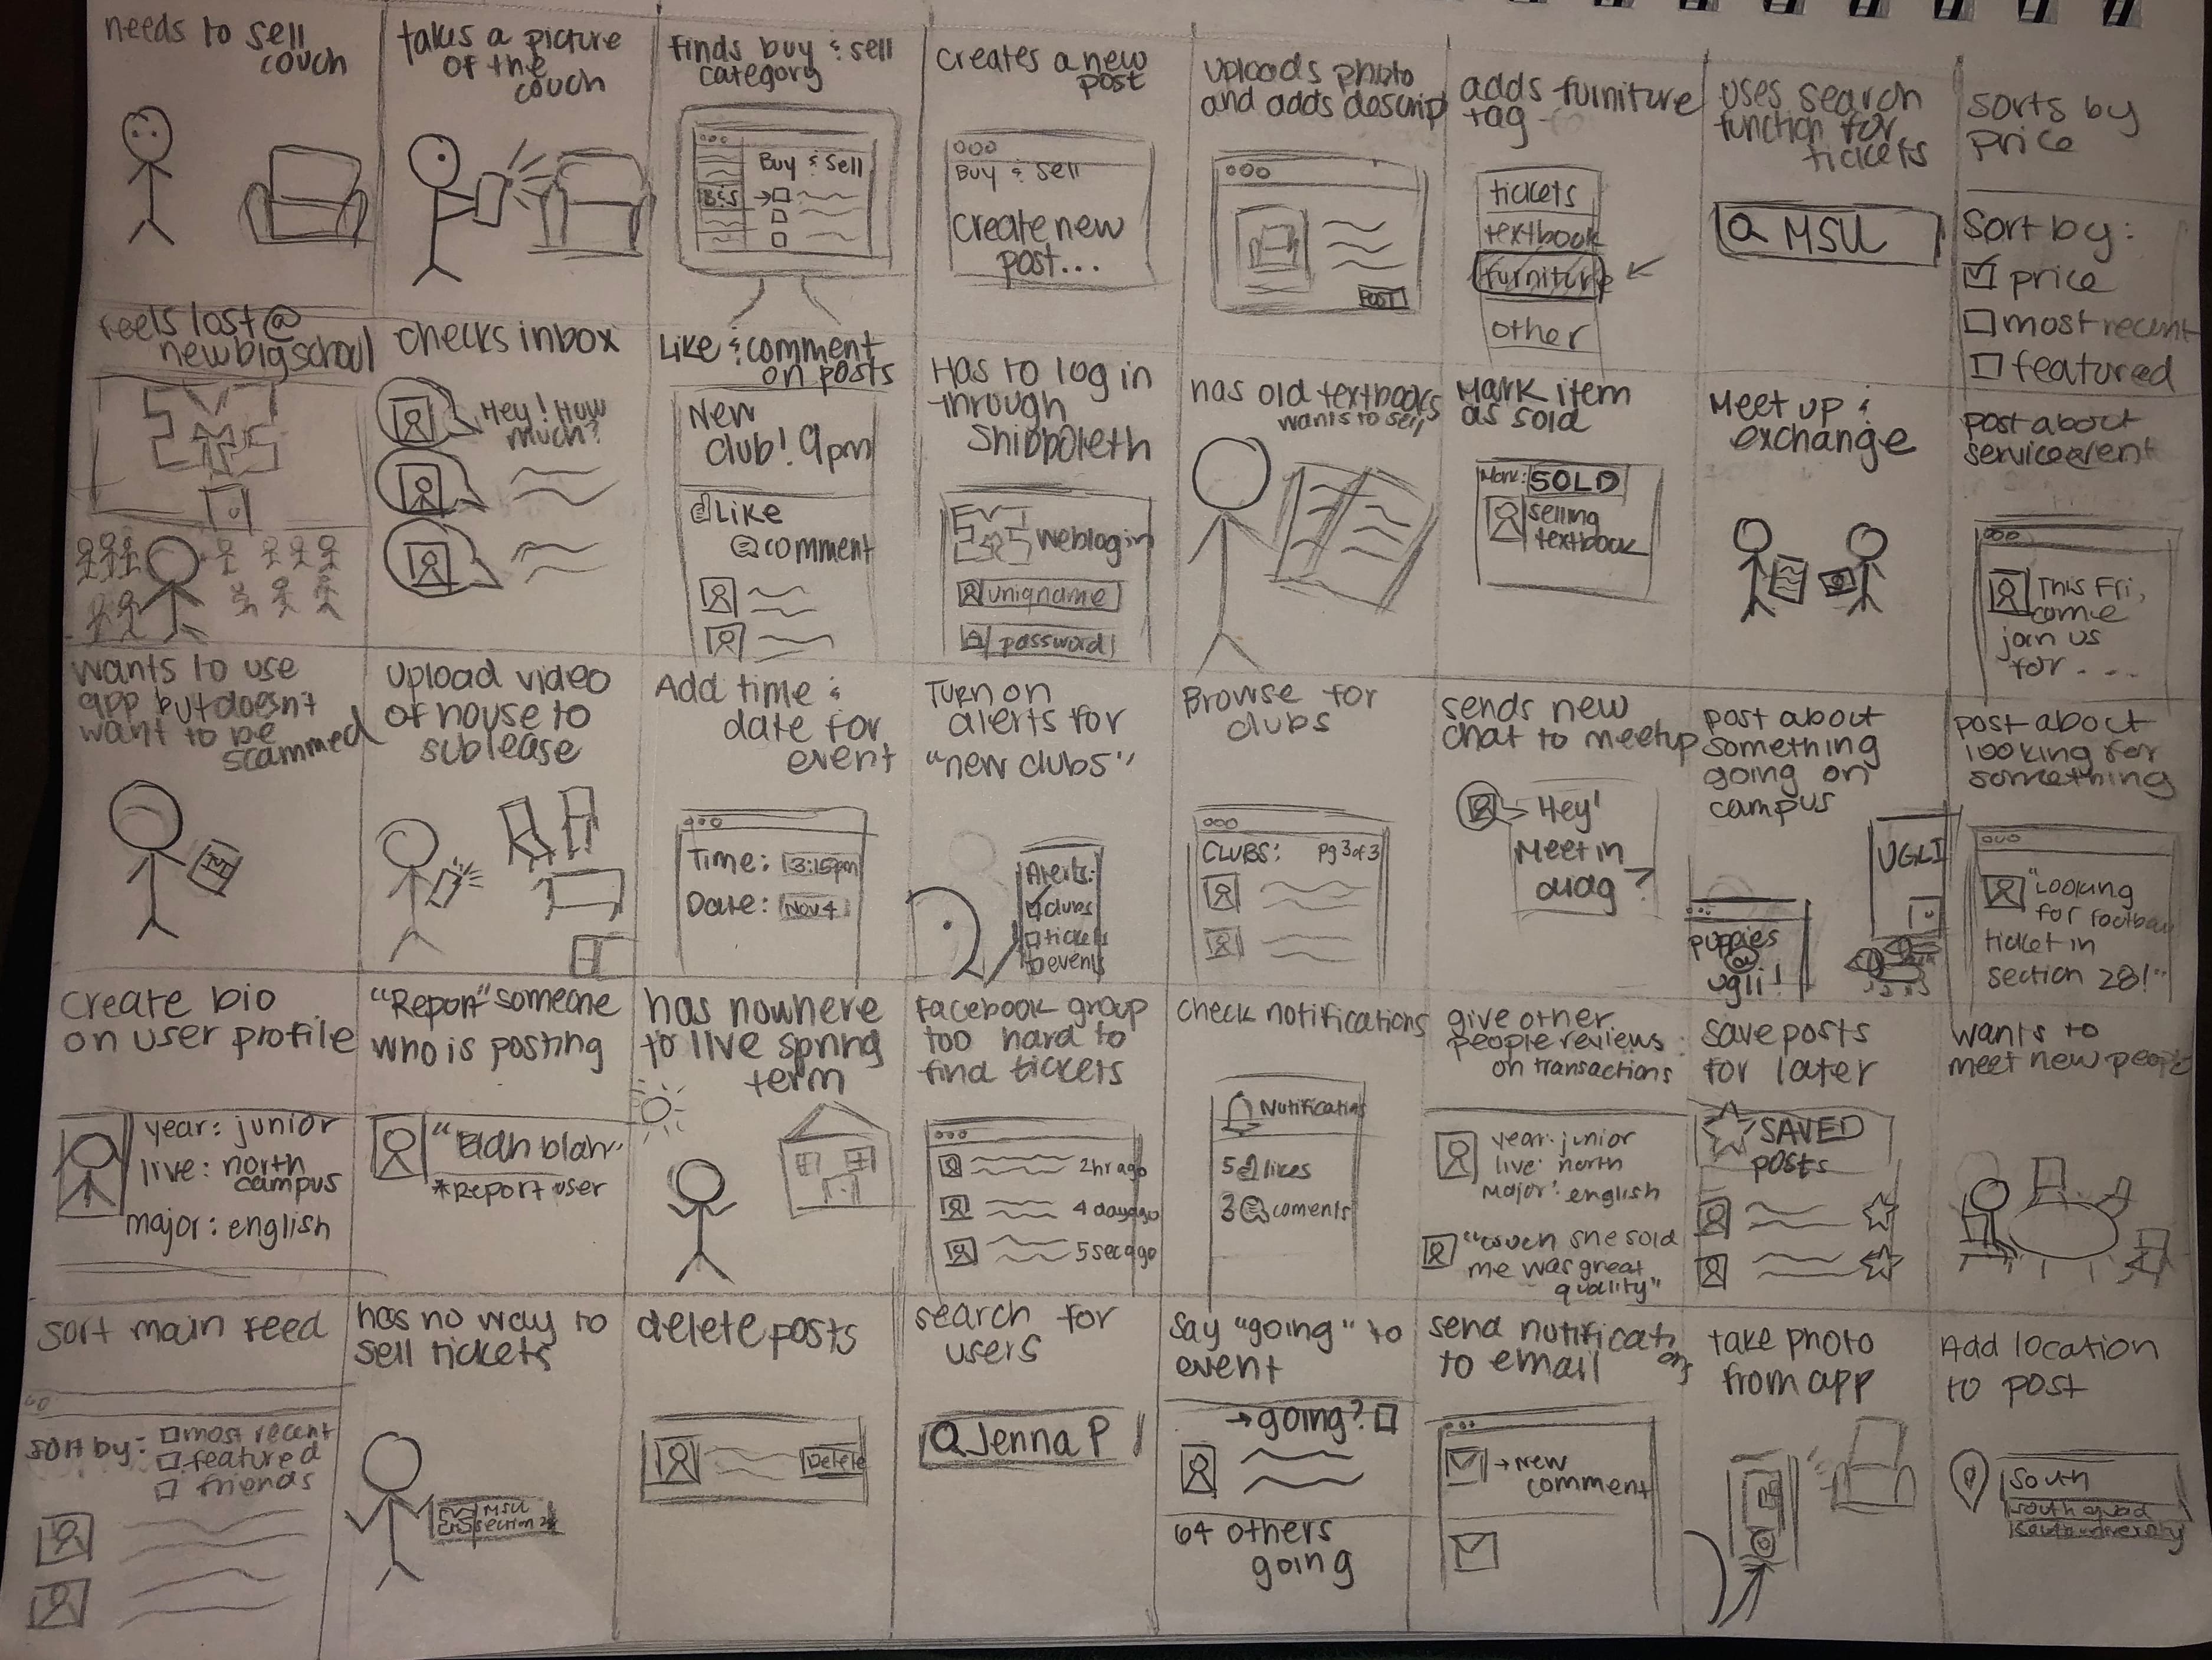 needs to sell
couch
takes a picture
of the
couch
finds buy & sell
category
Buy & Sell
B&S
creates a new
post
Buy & Sell
Create new
post...
uploads photo
and adds descrip
POST
adds furniture
tag
tickets
textbook
furniture
other
uses search
function for
tickets
MSU
sorts by
price
Sort by:
price
most recent
featured
feels lost @
new big school
checks inbox
Hey! How
much?
Like & comment
on posts
New
club! 9pm
Like
comment
Has to log in
through
Shibboleth
weblogin
uniqname
password
has old textbooks
wants to sell
Mark item
as sold
Mark: SOLD
selling
textbook
Meet up &
exchange
post about
service event
This Fri,
come
join us
for ....
wants to use
app but doesn't
want to be
scammed
upload video
of house to
sublease
Add time &
date for
event
Time: 3:15pm
Date: Nov 4
Turn on
alerts for
"new clubs"
Alerts:
clubs
tickets
events
Browse for
clubs
CLUBS: pg 3 of 3
sends new
chat to meetup
Hey!
Meet in
diag?
post about
something
going on
campus
UGLI
puppies
@
ugli!
post about
looking for
something
"Looking
for football
ticket in
section 28!"
create bio
on user profile
year: junior
live: north
campus
major: english
"Report" someone
who is posting
"Blah blah"
*Report user
has nowhere
to live spring
term
Facebook group
too hard to
find tickets
2hr ago
4 day ago
5 sec ago
check notifications
Notification
5 likes
3 coments
give other
people reviews
on transactions
year: junior
live: north
Major: english
"couch she sold
me was great
quality"
save posts
for later
SAVED
posts
wants to
meet new people
sort main feed
sort by: most recent
featured
friends
has no way to
sell tickets
MSU
section
delete posts
Delete
search for
users
Jenna P
say "going" to
event
→ going?
64 others
going
send notificati
ons
to email
→ New
comment
take photo
from app
Add location
to post
South
south quad
south university